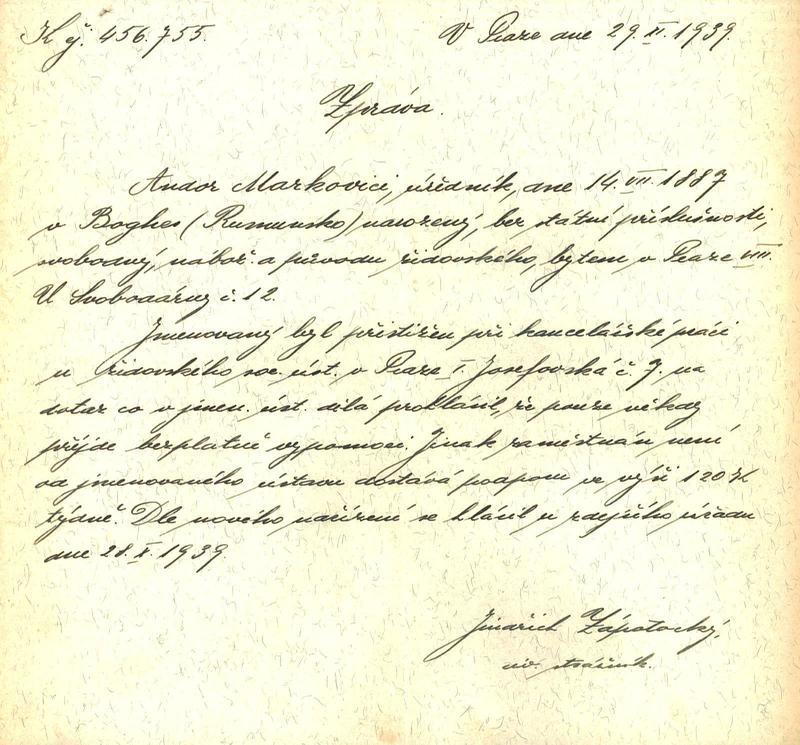 K čj. 456.755. V Praze dne 29.XI.1939.
Zpráva.
Andor Markovici, úředník, dne 14.VII.1887
v Boghes (Rumunsko) narozený, bez státní příslušnosti,
svobodný, nábož. a původu židovského, bytem v Praze VIII.
U Svobodárny č. 12.
Jmenovaný byl přistižen při kancelářské práci
u židovského soc. úst. v Praze I. Josefovská č. 7. na
dotaz co v jmen. úst. dělá prohlásil, že pouze někdy
přijde bezplatně vypomoci. Jinak zaměstnán není
od jmenovaného ústavu dostává podporu ve výši 120 K
týdně. Dle nového nařízení se hlásil u zdejšího úřadu
dne 28.X.1939.
Jindřich Zápotocký,
strážník.